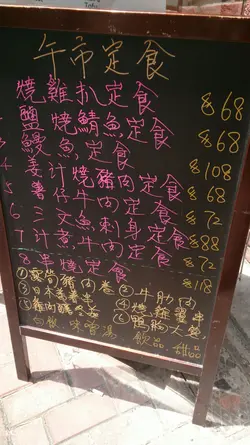 Tofu
午市定食
燒雞扒定食 $68
鹽燒鯖魚定食 $68
鰻魚定食 $108
4 姜汁燒豬肉定食 $68
5 薯仔牛肉定食 $72
6 三文魚刺身定食 $88
7 汁煮牛肉定食 $72
8 串燒定食 $118
①蘆筍豬肉卷 ②牛肋肉
③日本蔥雞串 ④燒雞翼串
⑤豬肉 ⑥鴨胸大蔥
白飯 味噌湯 飲品